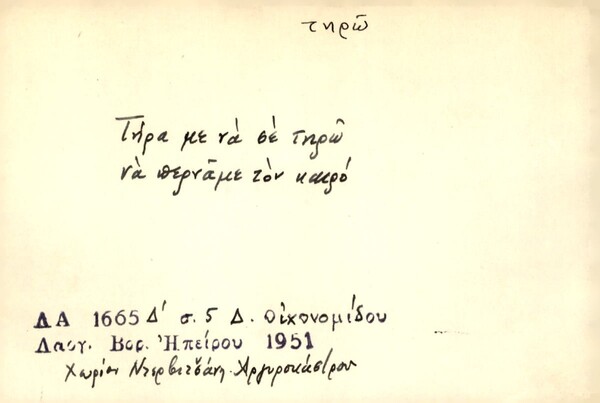 τηρῶ
Τήρα με νὰ σὲ τηρῶ
νὰ περνᾶμε τὸν καιρό
ΛΑ 1665 Δ' σ. 5 Δ. Οἰκονομίδου
Λαογ. Βορ. Ἠπείρου 1951
Χωρίον Ντερβιτσάνη Ἀργυροκάστρου